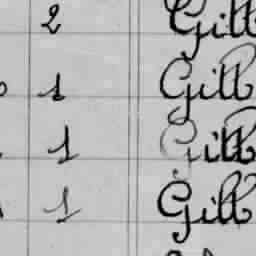 2 Gill
1 Gill
1 Gill
1 Gill